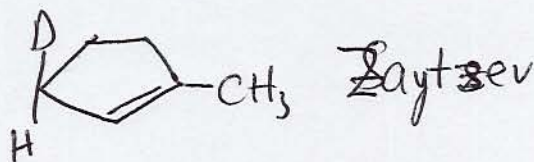 D
CH₃ Zaytzev
H